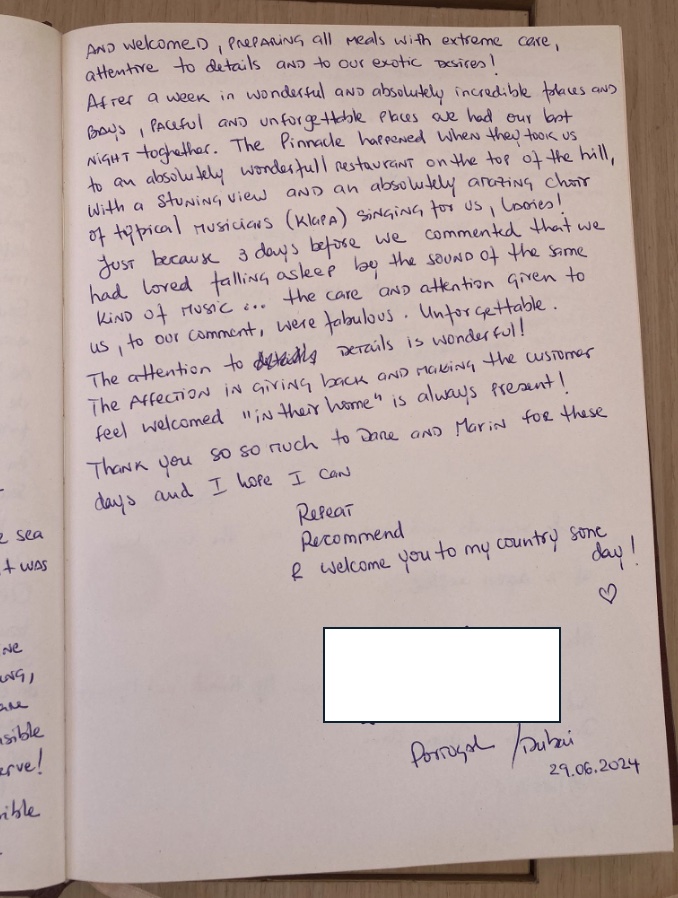 AND welcomeD, PREPARING all meals with extreme care,
attentive to details AND to our exotic DESIRES!
After a week in wonderful AND absolutely incredible places AND
BAYS, PACEFUL AND UNFORgettable Places we had our last
NIGHT toghether. The Pinnacle happened when they took us
to an absolutely wonderfull restaurant on the top of the hill,
With a STUNING view AND an absolutely amazing choir
of typical MUSICIANS (KlAPA) SINGING for us, LADIES!
JUST because 3 days before we commented that we
had loved falling asleep by the SOUND of the same
KIND of MUSIC ... the care AND attention given to
us, to our comment, were fabulous. Unforgettable.
The attention to DETAILS is wonderful!
The AFFECTION in GIVING back AND MAKING the customer
feel welcomed "in their home" is always present!
THANK you so so much to Dare AND MARIN for these
days and I hope I CAN
Repeat
Recommend
& welcome you to my country some
day!
♡
Portugal / Dubai
29.06.2024
e sea
t was
NE
ING,
sible
erve!
sible